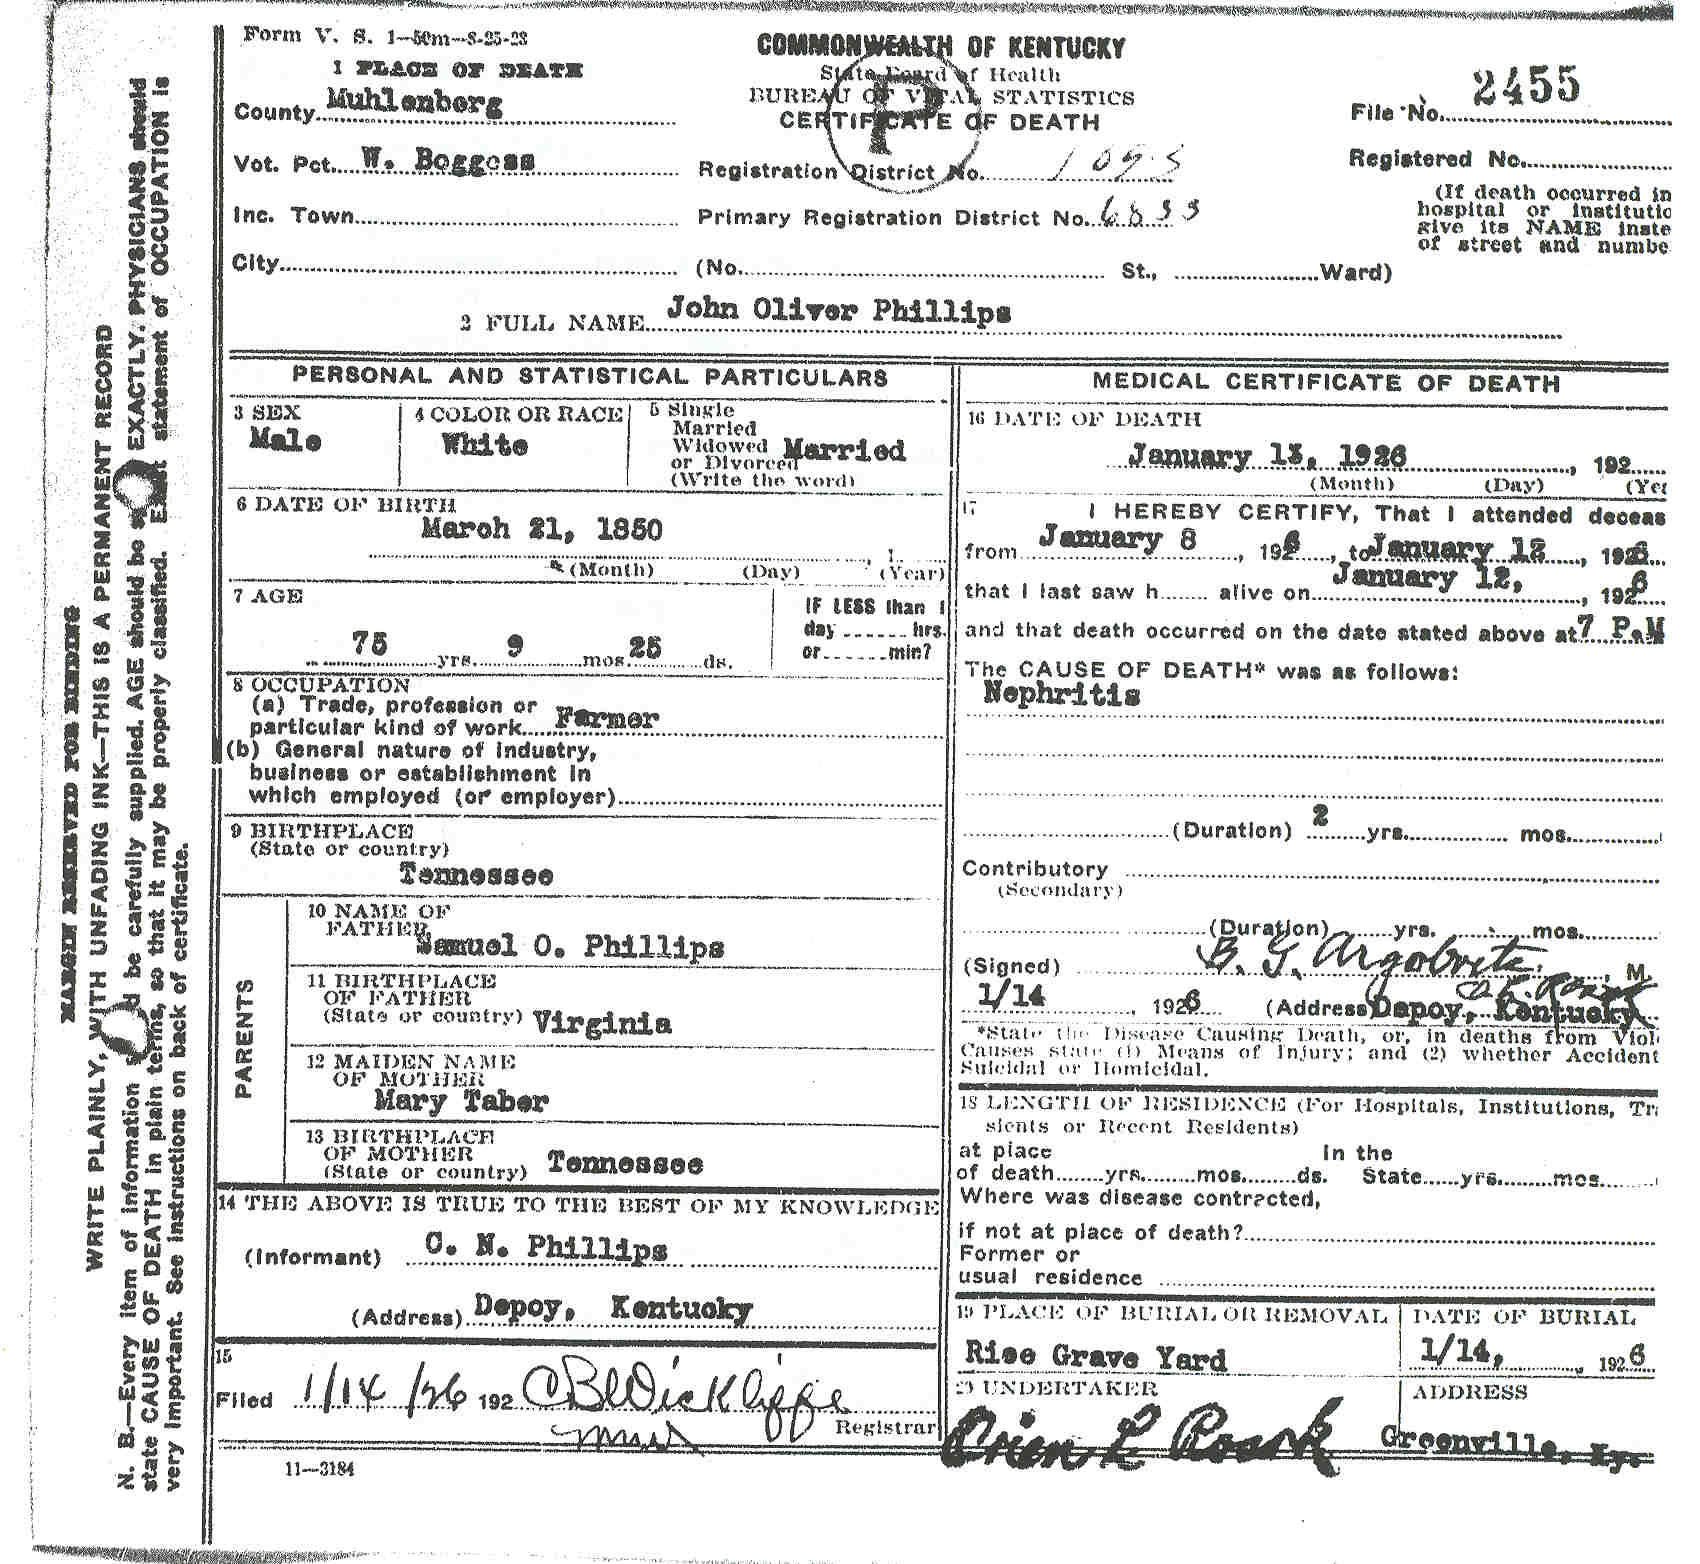 Form V. S. 1—50m—8-25-23
COMMONWEALTH OF KENTUCKY
State Board of Health
BUREAU OF VITAL STATISTICS
CERTIFICATE OF DEATH
P
File No. 2455
Registered No.
(If death occurred in
hospital or institutio
give its NAME inste
of street and numbe
1 PLACE OF DEATH
County Muhlenberg
Vot. Pct. W. Boggess
Registration District No. 1093
Inc. Town
Primary Registration District No. 6833
City (No. St., Ward)
2 FULL NAME John Oliver Phillips
PERSONAL AND STATISTICAL PARTICULARS
3 SEX
Male
4 COLOR OR RACE
White
5 Single
Married
Widowed
or Divorced
(Write the word)
Married
6 DATE OF BIRTH
March 21, 1850
, 1
(Month) (Day) (Year)
7 AGE
75 yrs. 9 mos. 25 ds.
IF LESS than 1
day hrs.
or min?
8 OCCUPATION
(a) Trade, profession or
particular kind of work Farmer
(b) General nature of industry,
business or establishment in
which employed (or employer)
9 BIRTHPLACE
(State or country)
Tennessee
PARENTS
10 NAME OF
FATHER
Samuel O. Phillips
11 BIRTHPLACE
OF FATHER
(State or country) Virginia
12 MAIDEN NAME
OF MOTHER
Mary Taber
13 BIRTHPLACE
OF MOTHER
(State or country) Tennessee
14 THE ABOVE IS TRUE TO THE BEST OF MY KNOWLEDGE
(Informant) C. N. Phillips
(Address) Depoy, Kentucky
15
Filed 1/14/26 192 CB Wickliffe
Registrar
11—3184
MEDICAL CERTIFICATE OF DEATH
16 DATE OF DEATH
January 13, 1926 , 192
(Month) (Day) (Yea
17 I HEREBY CERTIFY, That I attended deceas
from January 8 , 1926 , to January 12 , 1926
that I last saw h alive on January 12, , 1926
and that death occurred on the date stated above at 7 P.M
The CAUSE OF DEATH* was as follows:
Nephritis
(Duration) 2 yrs. mos.
Contributory
(Secondary)
(Duration) yrs. mos.
(Signed) B. G. Argobrite , M.
1/14 , 1926 (Address) Depoy, Kentucky
*State the Disease Causing Death, or, in deaths from Viol
Causes state (1) Means of Injury; and (2) whether Accident
Suicidal or Homicidal.
18 LENGTH OF RESIDENCE (For Hospitals, Institutions, Tra
sients or Recent Residents)
at place In the
of death yrs. mos. ds. State yrs. mos.
Where was disease contracted,
if not at place of death?
Former or
usual residence
19 PLACE OF BURIAL OR REMOVAL
Rice Grave Yard
DATE OF BURIAL
1/14, , 1926
20 UNDERTAKER
Orien L Roark
ADDRESS
Greenville, Ky.
MARGIN RESERVED FOR BINDING
WRITE PLAINLY, WITH UNFADING INK—THIS IS A PERMANENT RECORD
N. B.—Every item of information be carefully supplied. AGE should be EXACTLY. PHYSICIANS should
state CAUSE OF DEATH in plain terms, so that it may be properly classified. statement of OCCUPATION is
very important. See instructions on back of certificate.